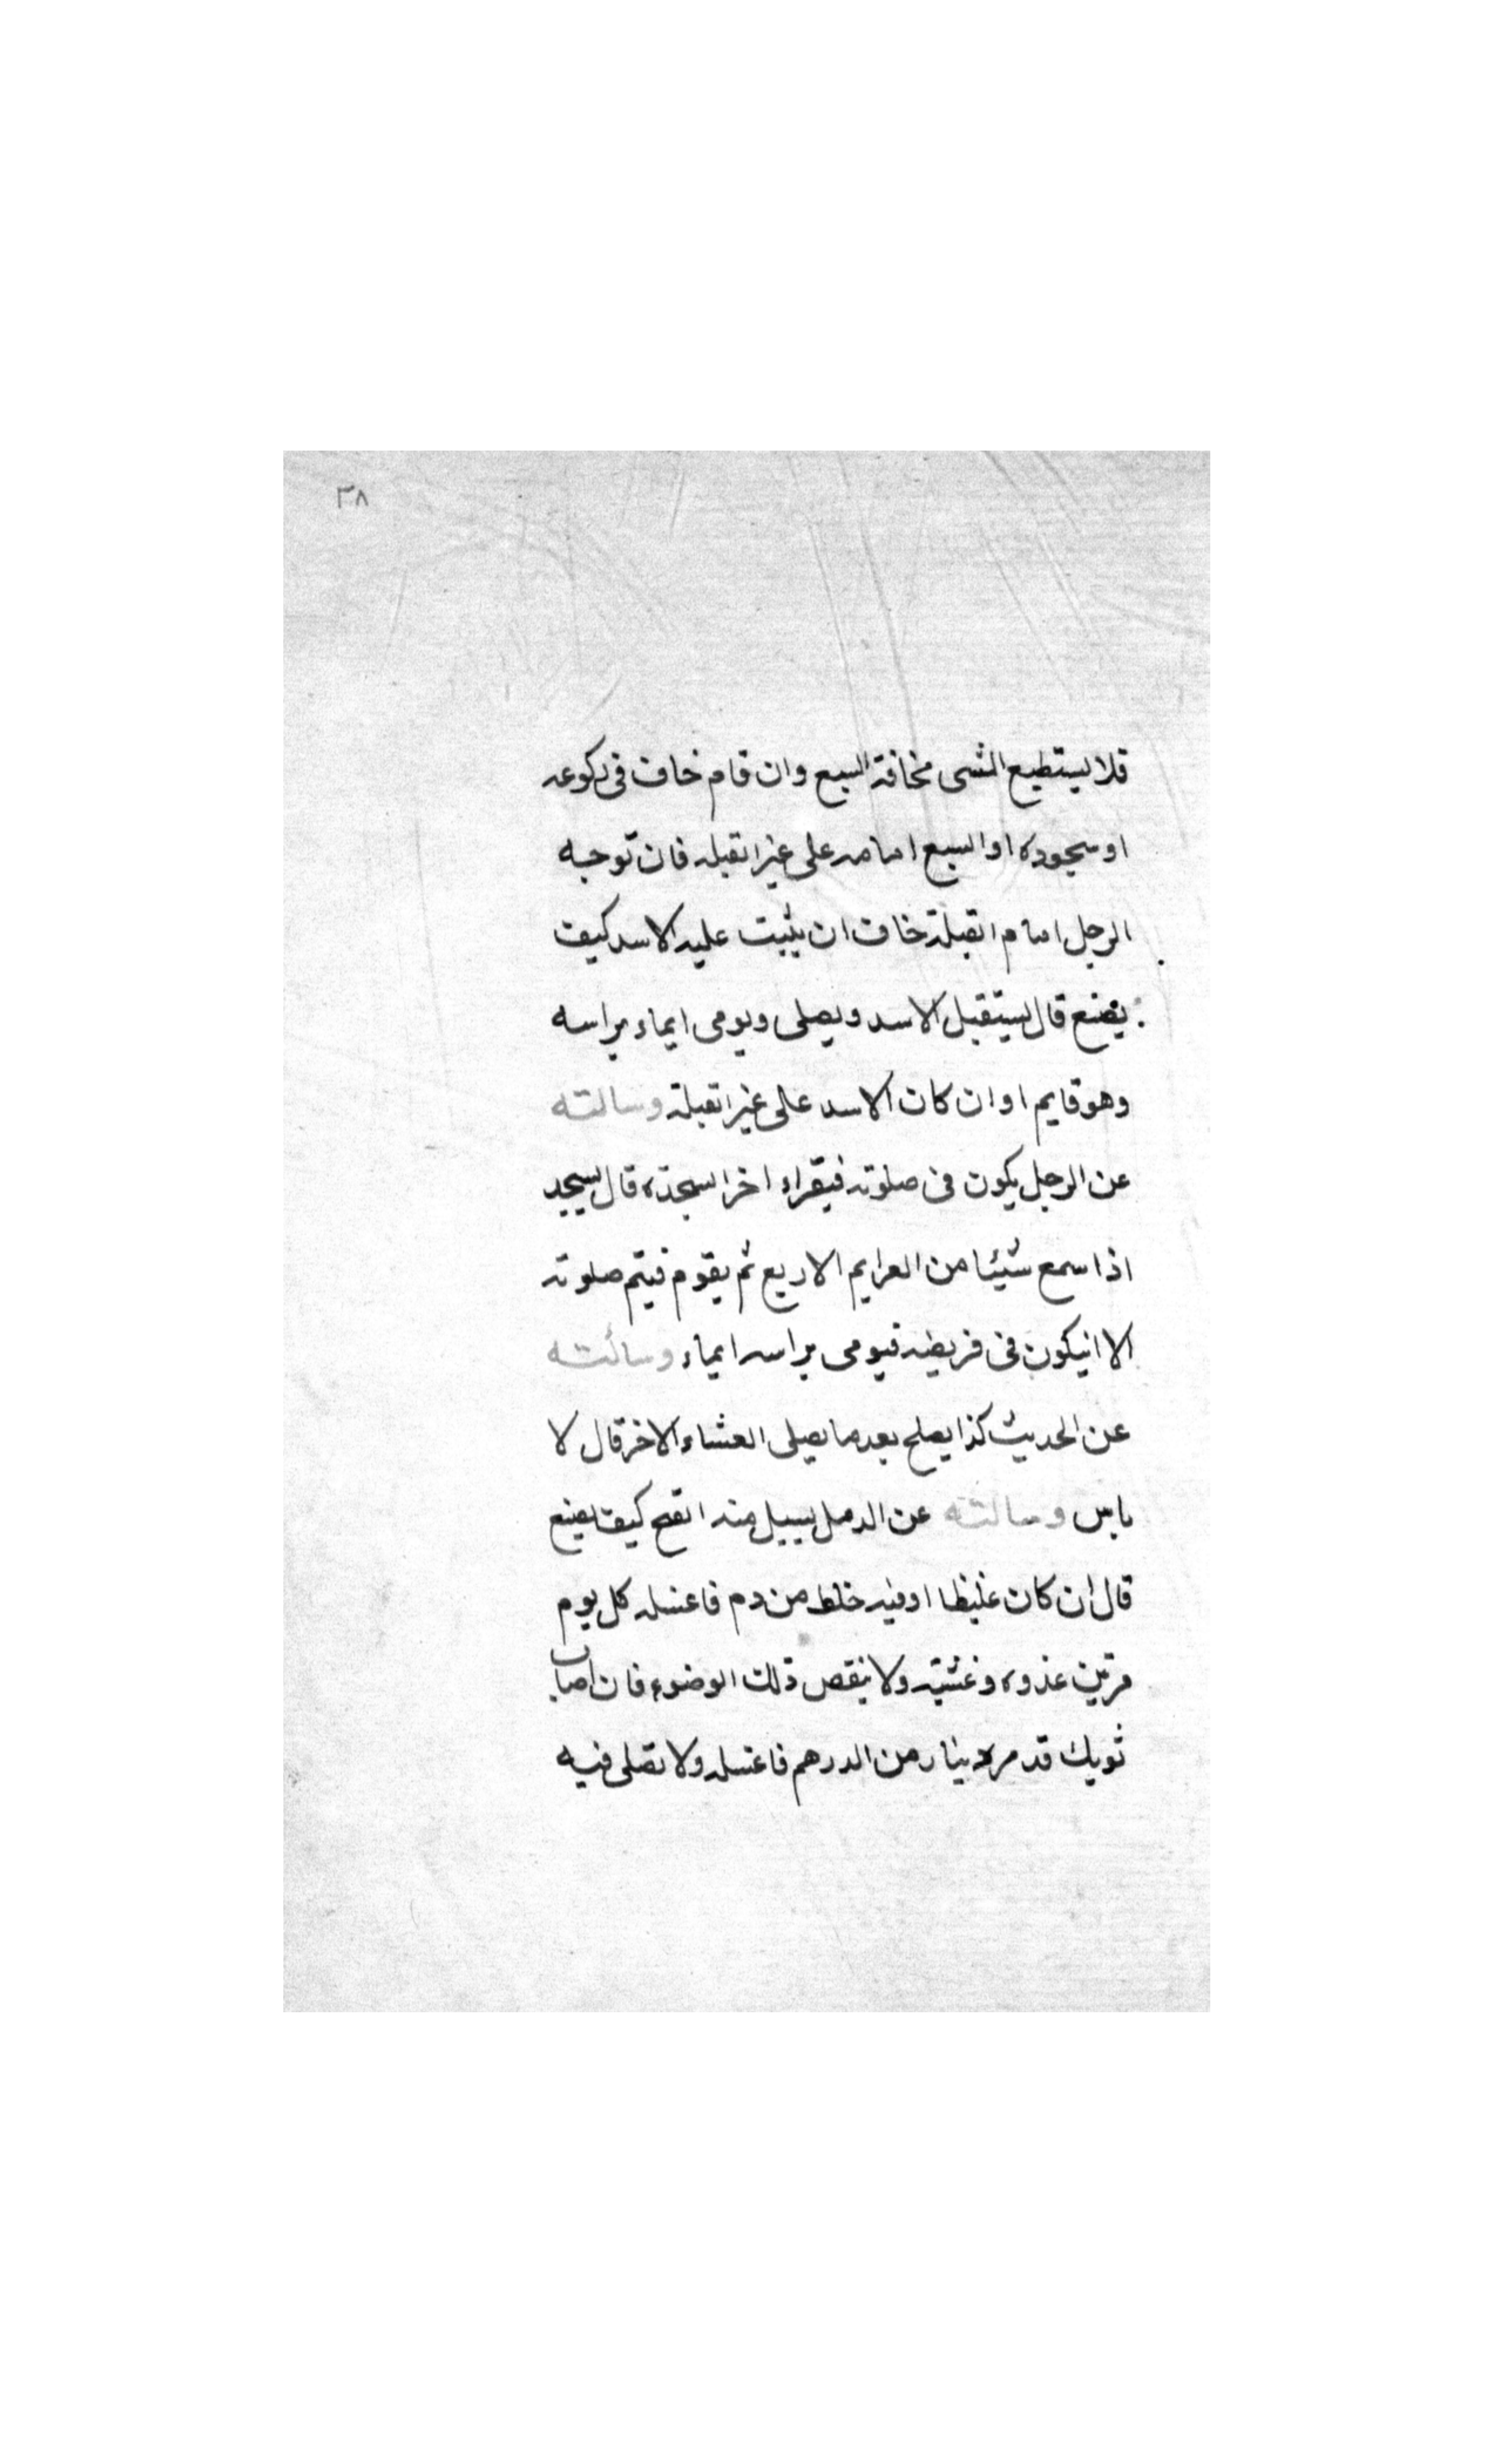 ٣٨
فلا يستطيع المشى مخافة السبع وان قام خاف فى ركوعه
او سجوده او السبع امامه على غير القبله فان توجه
الرجل امام القبلة خاف ان يثبت عليه الاسد كيف
يصنع قال يستقبل الاسد ويصلى ويومى ايماء براسه
وهو قايم او ان كان الاسد على غير القبلة وسالته
عن الرجل يكون فى صلوته فيقراء اخر السجدة قال يسجد
اذا سمع شيئا من العزايم الاربع ثم يقوم فيتم صلوته
الا انيكون فى فريضه فيومى براسه ايماء وسألته
عن الحديث كذا يصلح بعد ما يصلى العشاء الاخر قال لا
باس وسالته عن الدمل يسيل منه القيح كيف يصنع
قال ان كان غليظا اوفيه خلط من دم فاغسله كل يوم
مرتين غدوه وعشية ولا ينقص ذلك الوضوء فان اصاب
ثوبك قدمر دينار من الدرهم فاغسله ولا تصلى فيه